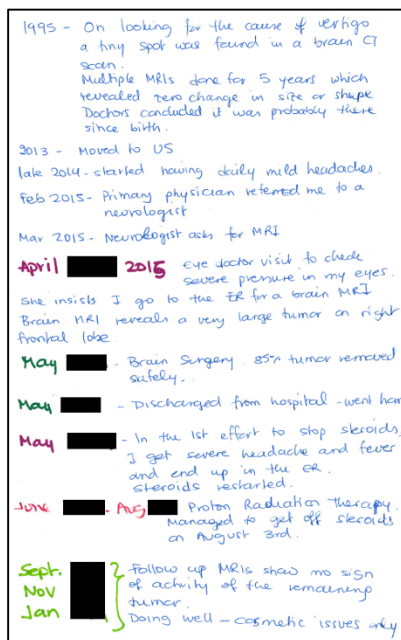 1995 - On looking for the cause of vertigo
a tiny spot was found in a brain CT
scan.
Multiple MRIs done for 5 years which
revealed zero change in size or shape
Doctors concluded it was probably there
since birth.
2013 - Moved to US
late 2014 - started having daily mild headaches.
Feb 2015 - Primary physician referred me to a
neurologist
Mar 2015 - Neurologist asks for MRI
April 2015 Eye doctor visit to check
severe pressure in my eyes.
She insists I go to the ER for a brain MRI
Brain MRI reveals a very large tumor on right
frontal lobe.
May - Brain Surgery. 85% tumor removed
safely.
May - Discharged from hospital - went hom
May - In the 1st effort to stop steroids,
I get severe headache and fever
and end up in the ER.
steroids restarted.
June - Aug Proton Radiation therapy.
Managed to get off steroids
on August 3rd.
Sept. Follow up MRIs show no sign
Nov of activity of the remaining
tumor.
Jan Doing well - cosmetic issues only